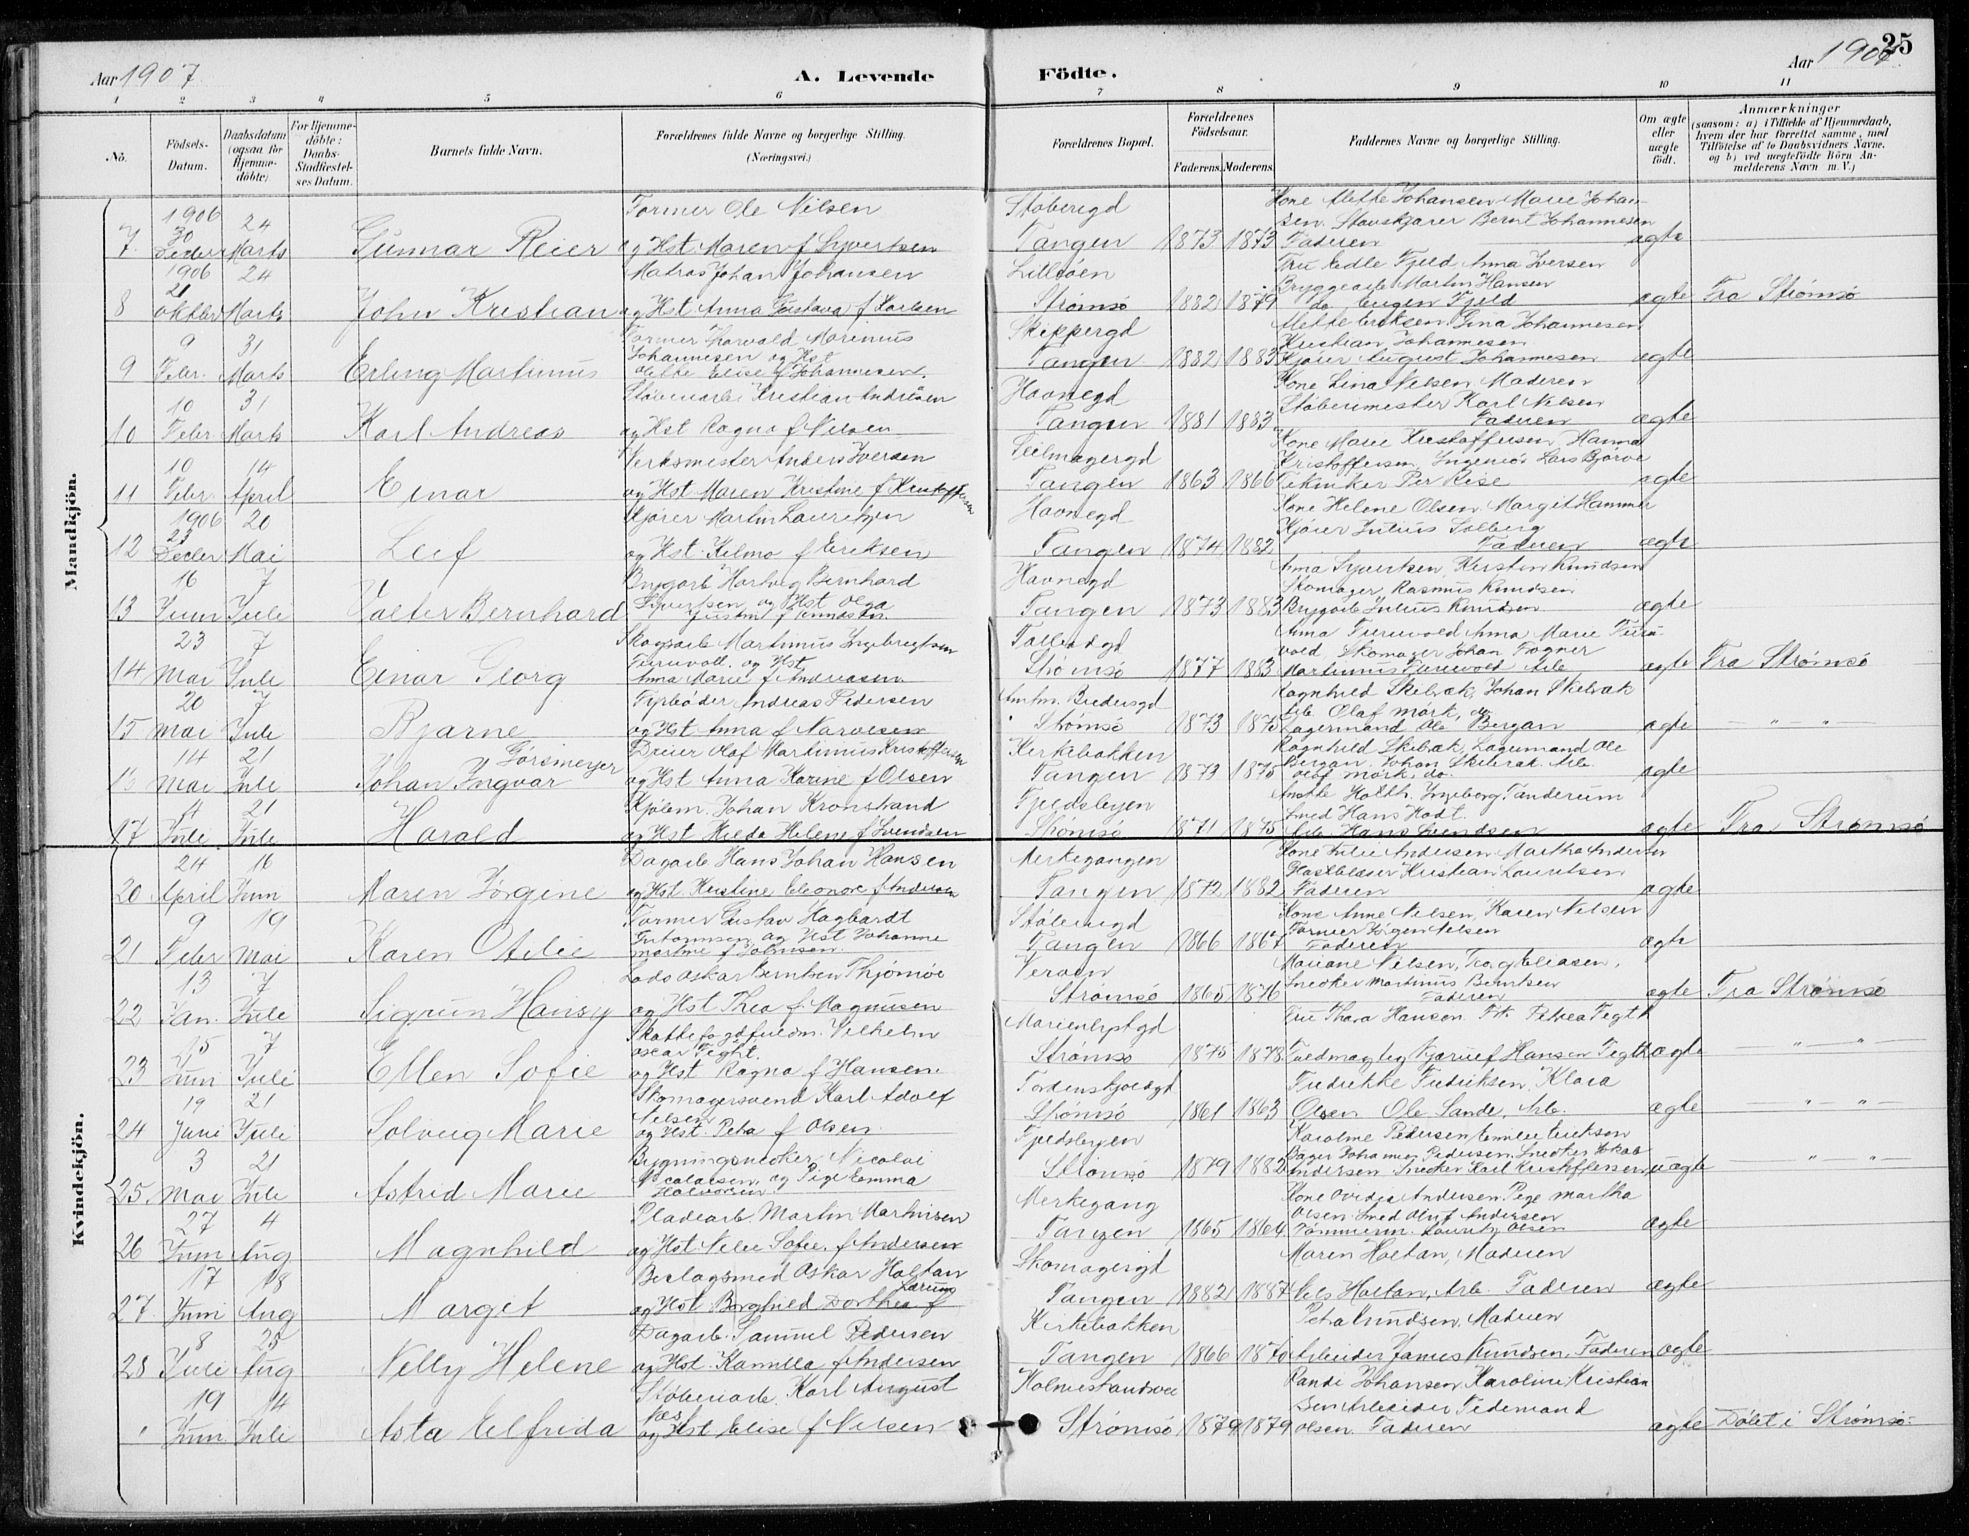 25
Aar 1907.
A. Levende
Födte.
Aar 1907.
1 2 3 4 5 6 7 8 9 10 11
No.
Födsels-Datum.
Daabsdatum (ogsaa for Hjemme-döbte).
For Hjemme-döbte: Daabs-Stadfæstel-ses Datum.
Barnets fulde Navn.
Forældrenes fulde Navne og borgerlige Stilling.
(Næringsvei.)
Forældrenes Bopæl.
Forældrenes Födselsaar.
Faderens. Moderens.
Faddernes Navne og borgerlige Stilling.
Om ægte eller uægte födt.
Anmærkninger
(saasom: a) i Tilfælde af Hjemmedaab, hvem der har forrettet samme, med Tilföielse af to Daabsvidners Navne, og b) ved uægtefödte Börn An-melderens Navn m. V.)
Mandkjön.
7. 1906 30 Decbr 24 Marts Gunnar Reier Former Ole Nilsen og Hst. Maren f Syvertsen Støberigd Tangen 1873 1873 Kone Mette Johansen Marie Johansen Bernt Johannesen Faderen ægte
8 1906 21 Oktbr 24 Marts John Kristian Matros Johan Johansen og Hst Anna Gustava f Karlsen Lilleöen Strömsö 1882 1879 Fru Edle Fjeld Anna Iversen Bryggearb Martin Hansen do Eugen Fjeld ægte Fra Strömsö
9 9 Febr. 31 Marts Erling Martinius Former Thorvald Marinius Johannesen og Hst Mette Elise f Johannesen. Skippergd Tangen 1882 1883 Mette Eriksen Gina Johannesen Kristian Johannesen Kjører August Johannesen ægte
10 10 Febr 31 Marts Karl Andreas Støberiarb Kristian Andresen og Hst Ragna f Nilsen Havnegd Tangen 1881 1883 Kone Lina Nilsen Moderen Støberimester Karl Nilsen Faderen ægte
11 10 Febr 14 April Einar Verksmester Anders Iversen og Hst Maren Kristine f Kristoffersen Seilmagergd Tangen 1863 1866 Kone Marie Kristoffersen Hanna Kristoffersen Ingeniør Lars Bjørve Tekniker Per Rise ægte
12 1906 23 Decbr 20 Mai Leif Kjører Martin Lauritzen og Hst. f Eriksen Havnegd Tangen 1874 1882 Kone Helene Olsen Margit Hammer Kjører Julius Solberg Faderen ægte
13 16 Juni 7 Juli Valter Bernhard Brygarb Hartvig Bernhard Syvertsen og Hst Olga Justine f Knudsen Havnegd Tangen 1873 1883 Anna Syvertsen, Kirstin Knudsen Skomager, Rasmus Knudsen Brygarb Julius Knudsen ægte
14 23 Mai 7 Juli Einar Georg Skogsarb Martinius Ingebrigtsen Furuvold. og Hst Anna Marie f Andreasen Strömsö 1877 1883 Anna Furuvold Anna Marie Furuvold Skomager Johan Fogner Martinius Furuvold Arb ægte Fra Strömsö
15 20 Mai 7 Juli Bjarne Fyrbøder Andreas Pedersen og Hst Anna f Narvesen Strömsö 1873 1875 Ragnhild Skilbæk, Johan Skilbæk Arb. Olaf Mörk, do Lagermand Ole Bergan ægte — " — " —
14 Mai 21 Juli Johan Ingvar Görsmeyer Dreier Olaf Martinius Kristoffersen og Hst Anna Karine f Olsen Kirkebakken Tangen 1873 1875 Ragnhild Skilbæk, Lagermand Ole Bergan. Johan Skilbræk Arb. Olaf Mörk, do. ægte
17 Juli 21 Juli Harald Johan Kronstrand og Hst Hilda Helene f Svendsen Fjeldsbyen Strömsö 1871 1875 Ingeborg Tanderum Smed Hans Arb Hans Svendsen ægte Fra Strömsö
Kvindekjön.
20 24 April 16 Juni Maren Jörgine Dagarb Hans Johan Hansen og Hst. Kristine Eleonore f Andersen Merkegangen Tangen 1872 1882 Kone Julie Andersen Martha Andersen Glasblæser Kristian Lauritsen Faderen ægte
21 9 Febr 19 Mai Karen Otilie Former Gustav Hagbardt og Hst Johanne Martine f Johnsen Støberigd Tangen 1866 1867 Kone Anne Nilsen, Karen Nilsen Former Jörgen Nilsen Faderen ægte
22 13 Jan. 7 Juli Sigrun Hansy Lods Oskar Berntsen Thjømøe og Hst Thea f Magnusen Strömsö 1865 1876 Mariane Nilsen, Snedker Martinius Berntsen Faderen ægte Fra Strömsö
23 15 Juni 7 Juli Ellen Sofie Skattefogdfuldm. Vilhelm Oscar Teght. og Hst Ragna f Hansen. Marienlystgd Strömsö 1875 1878 Fru Thora Hansen Frk Petrea Tegth Hansen Tegth ægte — " — " —
24 19 Juni 21 Juli Solveig Marie Skomagersvend Karl Adolf Nilsen og Hst. Petra f Olsen. Tordenskjoldsgd Strömsö 1861 1863 Fredrikke Fredriksen, Klara Olsen Ole Sande, Arb. ægte — " — " —
25. 3 Mai 21 Juli Astrid Marie Bygningssnedker Nicolai Nicolaisen og Pige Emma Halvorsen Fjeldsbyen Strömsö 1879 1882 Karoline Pedersen Emilie Erikson Bager Johannes Pedersen Snedker Jakob Andersen Snedker Karl Kristoffersen uægte — " — " —
26 27 Juni 4 Aug Magnhild Pladearb. Martin Martinisen og Hst Nilie Sofie. f Andersen Merkegang Tangen 1865 1864 Kone Andersen Pige Martha Olsen Smed Oluf Andersen Tømmerm. Lauritz Olsen ægte
27. 17 Juni 18 Aug Margit Beslagsmed Oskar Holtan og Hst Borghild Dorthea f Larsen Skomagergd Tangen 1882 1887 Maren Holtan, Moderen Nils Holtan, Arb. Faderen ægte
28 8 Juli 25 Aug Nelly Helene Dagarb. Samuel Pedersen og Hst. Kamilla f Andersen Kirkebakken Tangen 1866 1870 Petra Knudsen, Moderen Arbeider James Knudsen, Faderen ægte
19 Juni 14 Juli Asta Elfrida Støberiarb. Karl August Næs og Hst Elise f Nilsen Holmestrandsvei Strömsö 1879 1879 Randi Johansen Karoline Kristiansen Arbeider Tidemand Olsen Faderen ægte Döbt i Strömsö